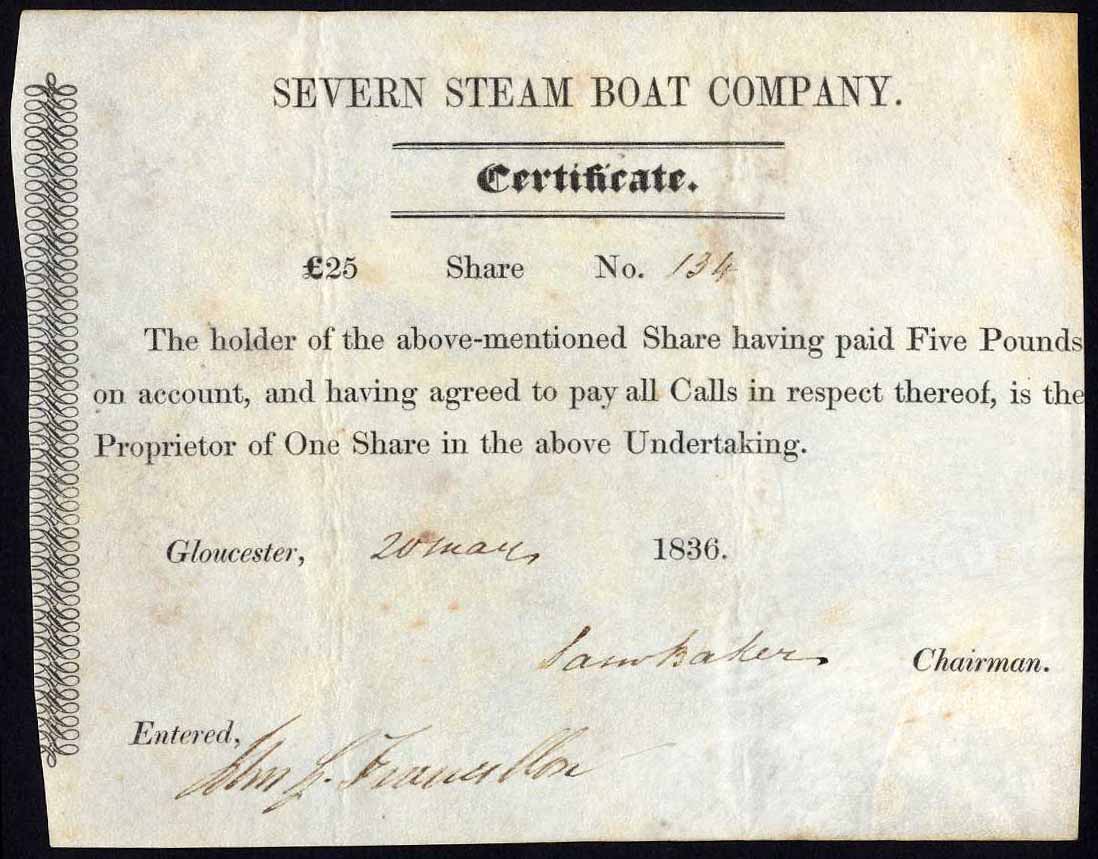 SEVERN STEAM BOAT COMPANY.
Certificate.
£25 Share No. 134
The holder of the above-mentioned Share having paid Five Pounds
on account, and having agreed to pay all Calls in respect thereof, is the
Proprietor of One Share in the above Undertaking.
Gloucester, 20 May 1836.
Sam Baker Chairman.
Entered,
Francillon